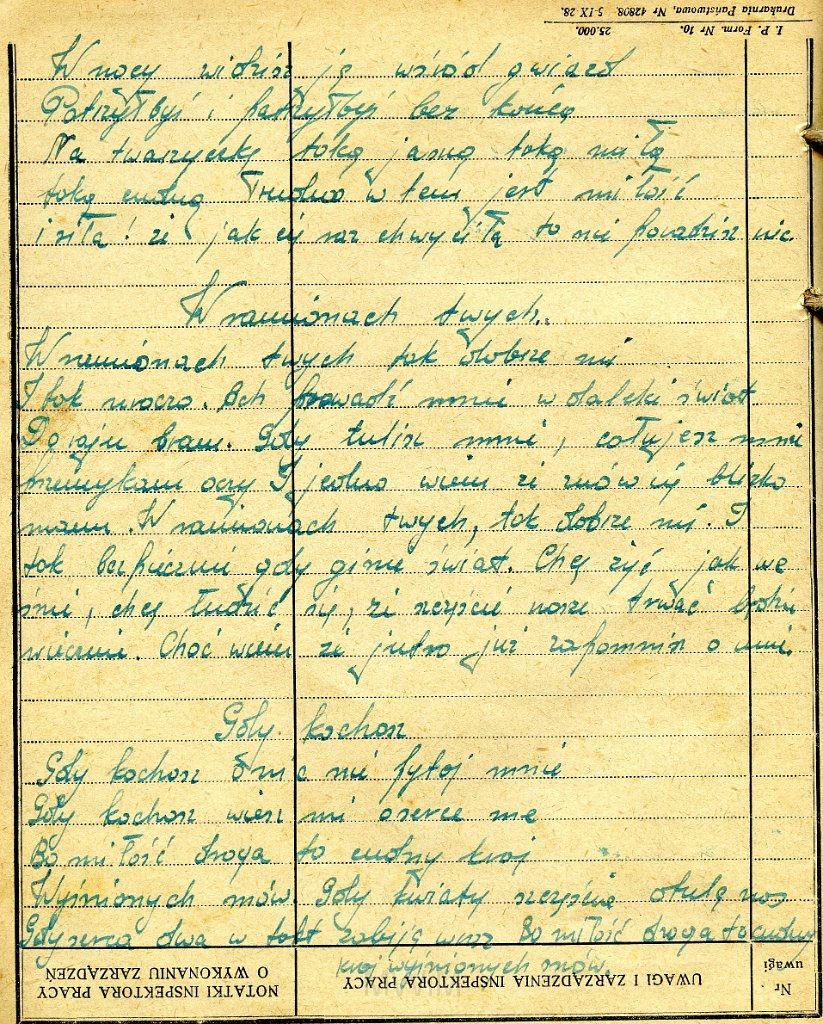 I. P. Form. Nr 10. 25.000.
Drukarnia Państwowa, Nr 42808. 5-IX 28.
W nocy widzisz ją wśród gwiazd
Patrzyłbyś i patrzyłbyś bez końca
Na twarzyczkę taką jasną taką miłą
taką cudną Trudno w tem jest miłość
i siła! że jak cię raz chwyciła to nie poradzisz nic.
W ramionach twych.
W ramionach twych tak dobrze mi
I tak uroczo. Ach prowadź mnie w daleki świat
Do raju bram. Gdy tulisz mnie, całujesz mnie
przemykam oczy I jedno wiem że znów cię blizko
mam. W ramionach twych, tak dobrze mi. I
tak bezpiecznie gdy ginie świat. Chcę żyć jak we
śnie, chcę łudzić się, że szczęście nasze trwać będzie
wiecznie. Choć wiem że jutro już zapomnisz o mnie.
Gdy kochasz
Gdy kochasz o nic nie pytaj mnie
Gdy kochasz wierz mi o serce me
Bo miłość droga to cudny kraj
Wyśnionych snów. Gdy kwiaty szczęścia otulą nas
Gdy serca dwa w takt zabiją wraz Bo miłość droga to cudny
kraj wyśnionych snów.
NOTATKI INSPEKTORA PRACY O WYKONANIU ZARZĄDZEŃ
UWAGI I ZARZĄDZENIA INSPEKTORA PRACY
Nr uwagi